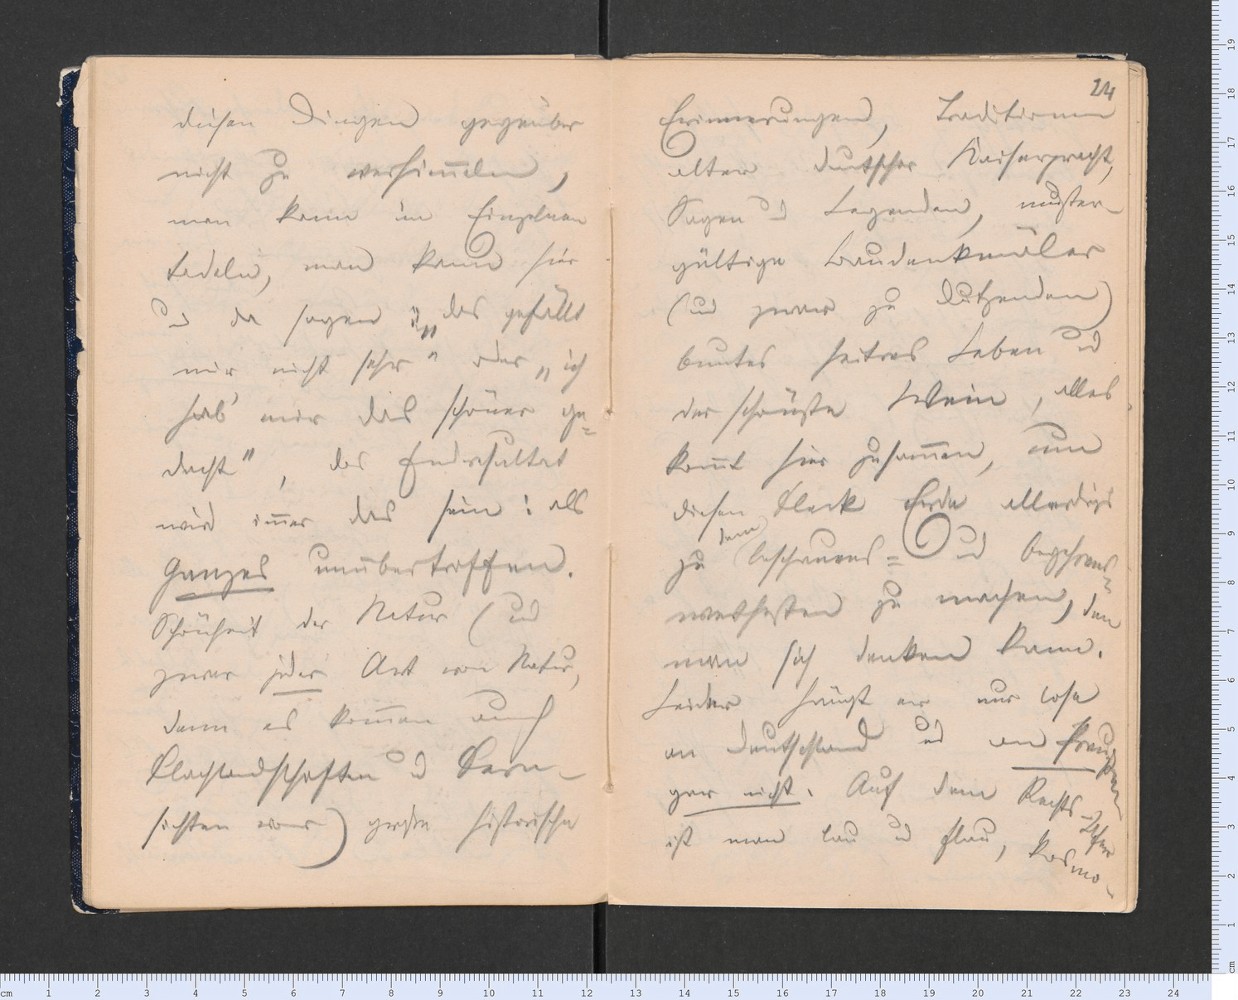 diesen Dingen gegenüber
nicht zu verhim̅eln,
man kann im Einzelnen
tadeln, man kann hier
und da sagen „das gefällt
mir nicht sehr“ oder „ich
hab' mir das schöner ge=
dacht“, das Endresultat
wird im̅er das sein: als
Ganzes unübertroffen.
Schönheit der Natur (und
zwar jeder Art von Natur,
denn es kom̅en auch
Flachlandschaften und Fern-
sichten vor) große historische
24
Erinnerungen, Traditionen
alter deutscher Kaiserpracht,
Sagen und Legenden, muster-
gültige Baudenkmäler
(und zwar zu Dutzenden)
buntes heitres Leben und
der schönste Wein, alles
kom̅t hier zusam̅en, um
diesen Fleck Erde allerdings
zu dem beschauens= und begehrens=
werthesten zu machen, den
man sich denken kann.
Leider hängt er nur lose
an Deutschland und an Preußen
gar nicht. Auf dem Rechts-Ufer
ist man lau und flau, kosmo-